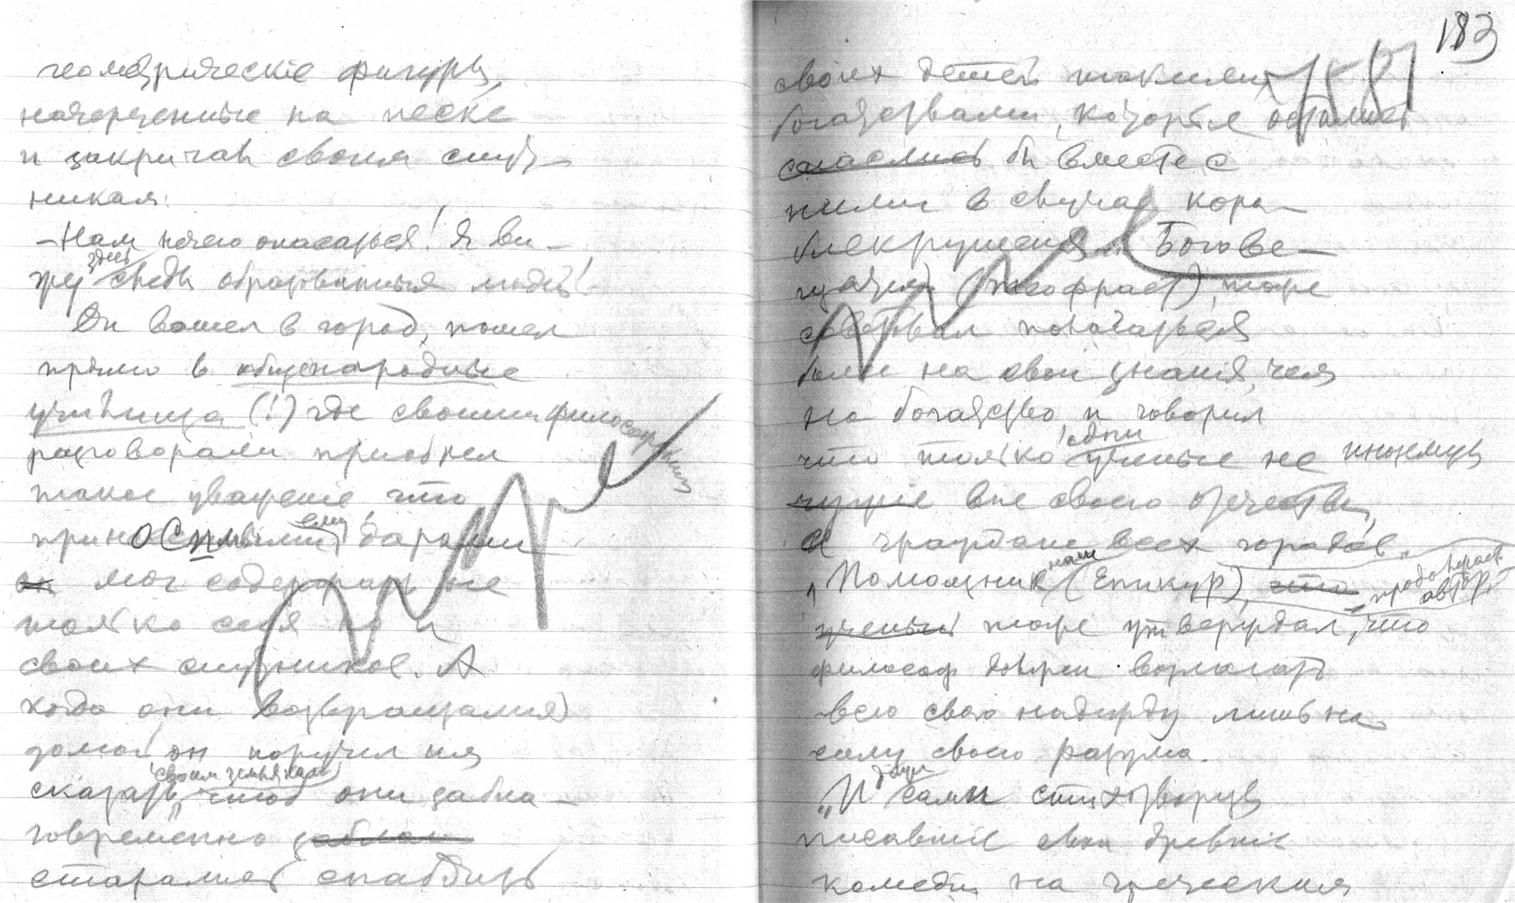 геометрическіе фигуры,
начерченные на песке
и закричал своим спут-
никам:
– Нам нечего опасаться! Я ви-
жу здесь следы образованных людей!
Он вошел в город, пошел
прямо в общенародные
училища (!) где своими философскими
разговорами приобрел
такое уважение что
приносимыми ему дарами
мог содержать не
только себя но и
своих спутников. А
когда они возвращались
домой он поручил им
сказать своим землякам, чтоб они забла-
говременно заблаг
старались снабдить
183
своих детей такими
богатствами, которые остались
спаслись бы вместе с
ними в случае кора-
блекрушения. Богове-
щатель (Теофраст) тоже
советовал полагаться
более на свои знания, чем
на богатство и говорил
что только одни ученые не
чужие вне своего отечества,
а граждане всех городов.
Помощник наш (Епикур), что – продолжает автор, –
ученый тоже утверждал, что
философ должен возлагать
всю свою надежду лишь на
силу своего разума.
"И сами стихотворцы
писавшіе свои древніе
комедіи на греческих